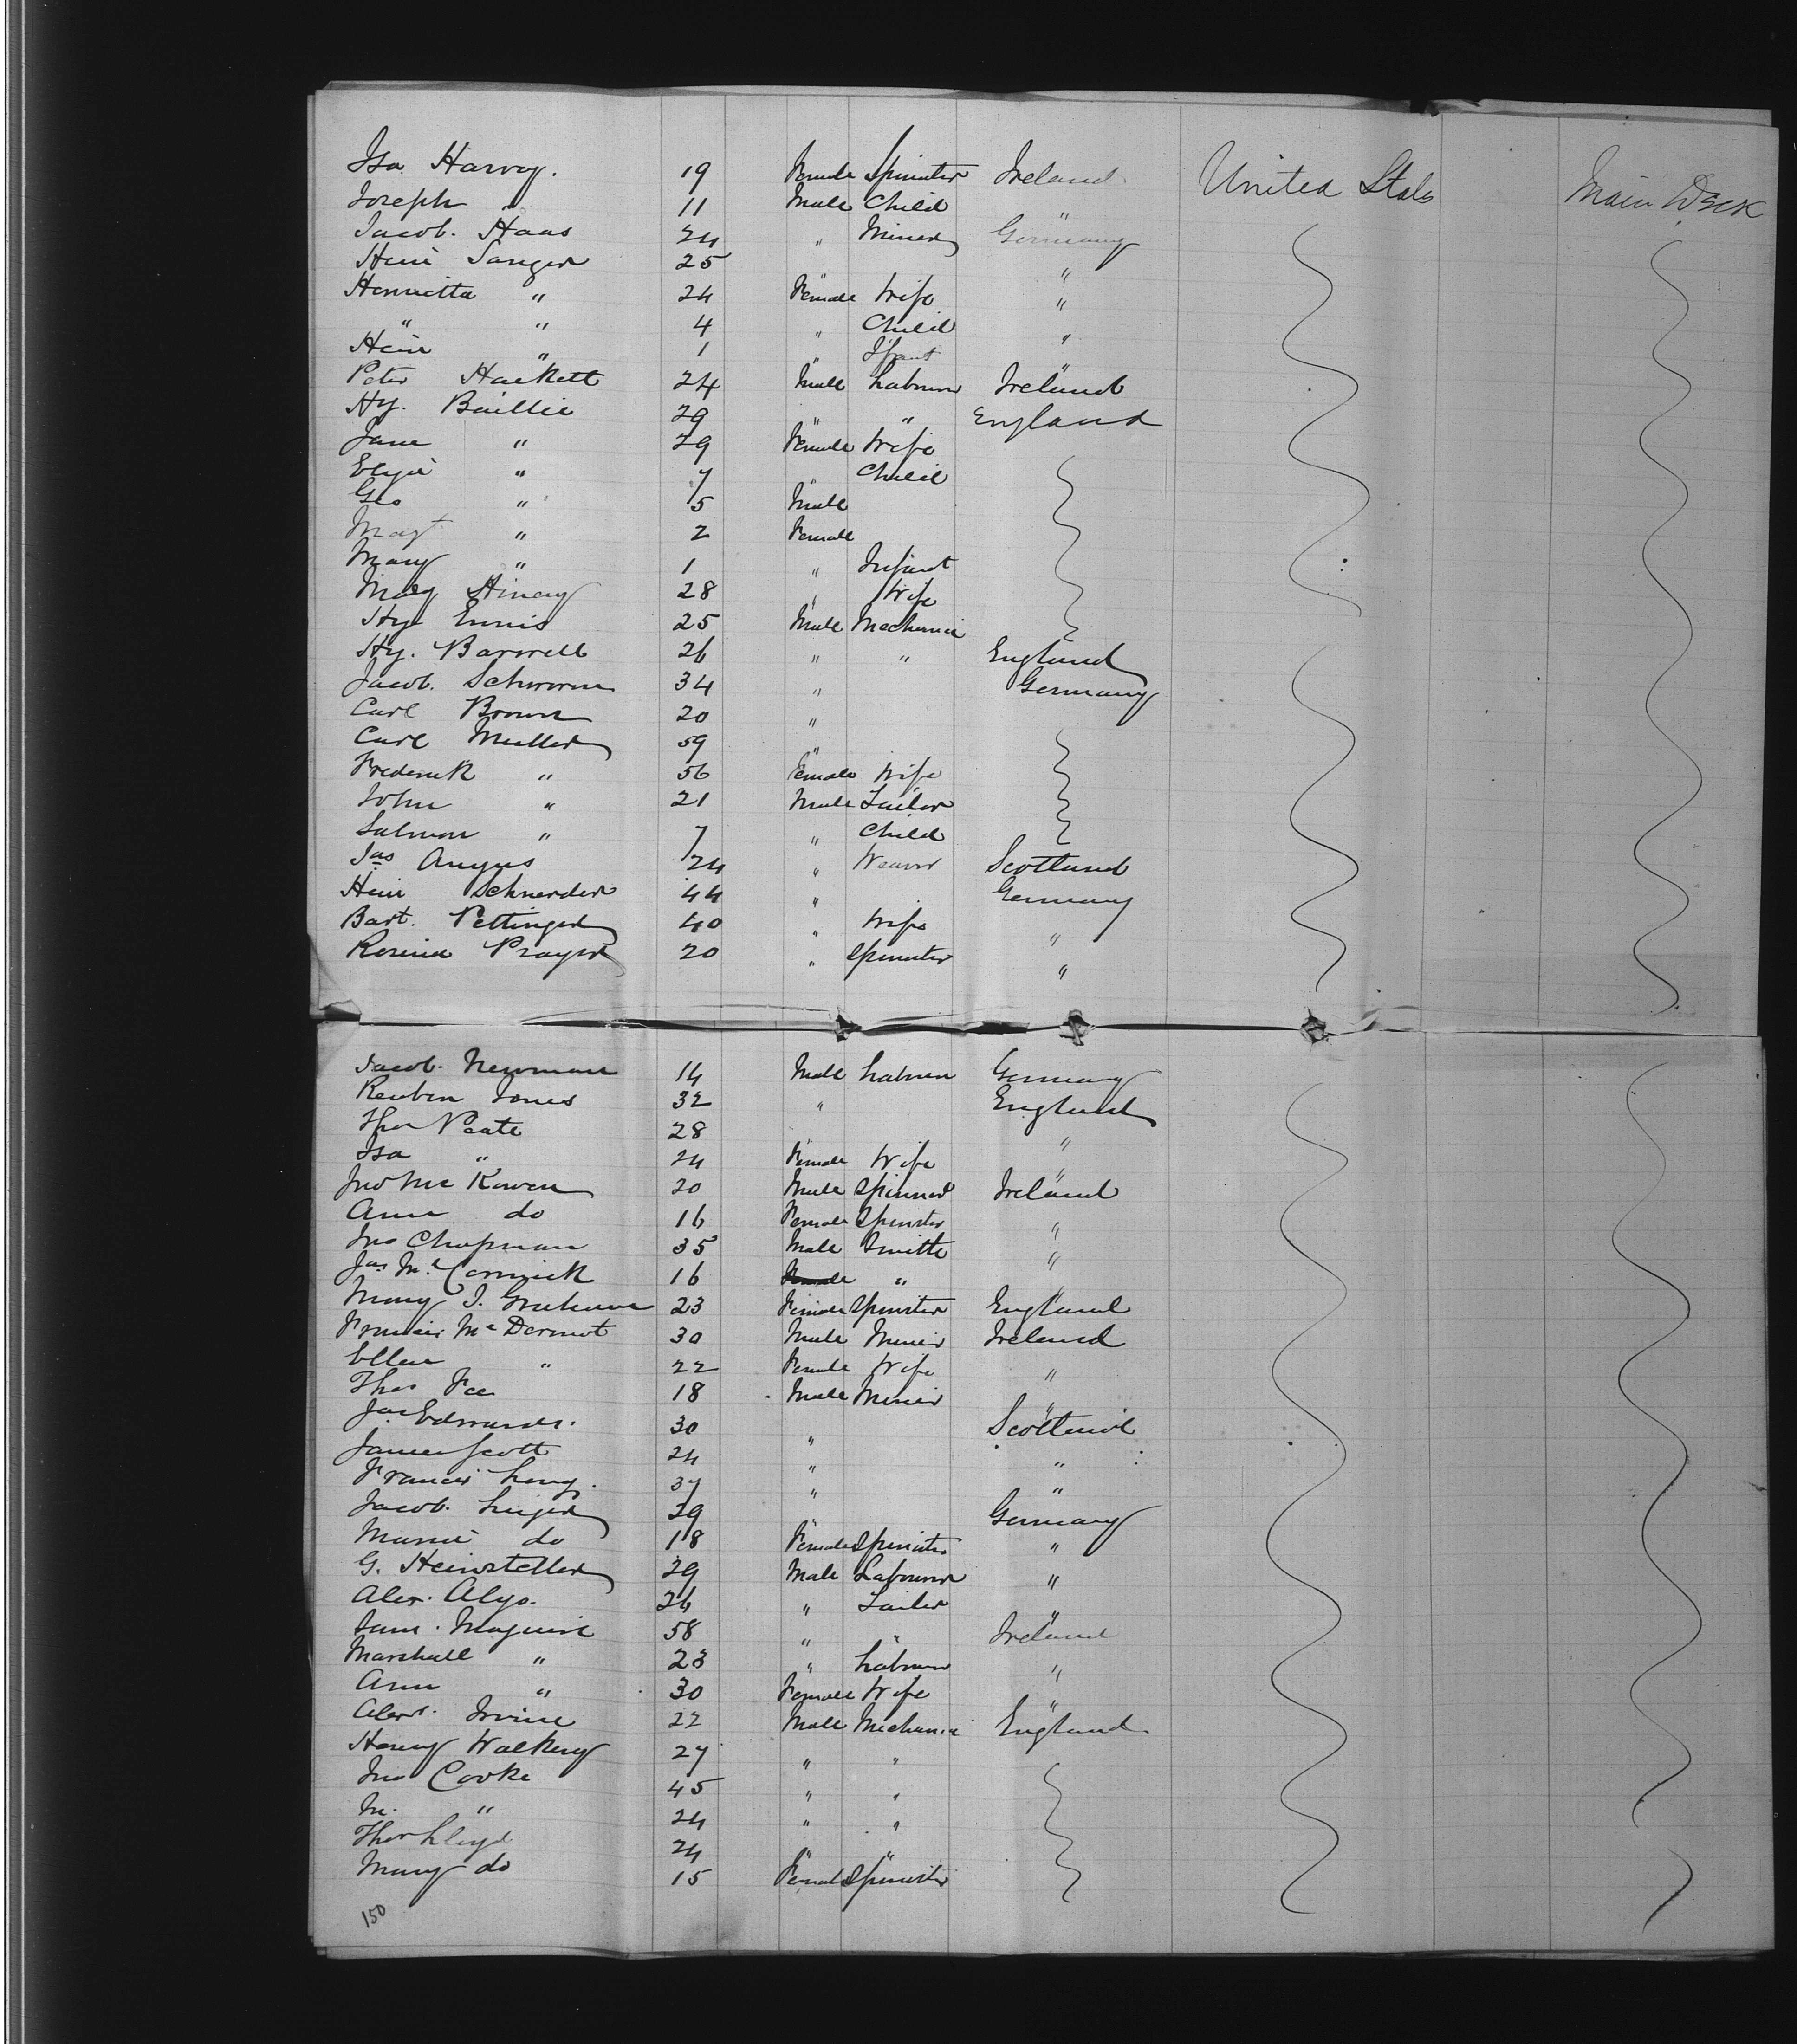 Isa Harvey. 19 Female Spinster Ireland United States Main Deck
Joseph " 11 Male Child "
Jacob. Haas 24 " Miner Germany
Hein Sanger 25 "
Henrietta " 24 Female Wife "
" " 4 " Child "
Hein " 1 " Ifant "
Peter Hackett 24 Male Labourer Ireland
Hy. Baillie 29 " " England
Jane " 29 Female Wife
Eliza " 7 " Child
Geo " 5 Male
Magt " 2 Female
Mary " 1 " Infant
Mary 28 " Wife
Hy. Ennis 25 Male Mechanic
Hy. Barwell 26 " " England
Jacob. Schworm 34 " Germany
Carl Brown 20 "
Carl Muller 59 "
Frederick " 56 Female Wife
John " 21 Male Tailor
Salmon " 7 " Child
Jas Angus 24 " Weaver Scotland
Hein Schneider 44 " Germany
Bart. Pettinger 40 " Wife "
Rosina Prayer 20 " Spinster "
Jacob. Newman 14 Male Labourer Germany
Reuben Jones 32 " England
Thos Paate 28 "
Isa " 24 Female Wife "
Jno Mc Kowen 20 Male Spinner Ireland
Ann do 16 Female Spinster "
Jno Chapman 35 Male Smith "
Jas Mc Cormick 16 "
Mary J. Graham 23 Female Spinster England
Francis Mc Dermot 30 Male Miner Ireland
Ellen " 22 Female Wife "
Thos Fee 18 Male Miner "
Jas Edwards. 30 Scotland
James Scott 24 " "
Francis Long. 37 " "
Jacob. 29 Germany
do 18 Female Spinster "
G. Heinsteller 29 Male Labourer "
Alex. Alys. 26 " Tailor "
Saml. Maguire 58 " " Ireland
Marshall " 23 " Labourer "
Ann " 30 Female Wife "
Alexr. Irvine 22 Male Mechanic England
Henry Walkery 27 " "
Jno Cooke 45 " "
M. " 24 " "
Thos Lloyd 24 " "
Mary do 15 Female Spinster
150